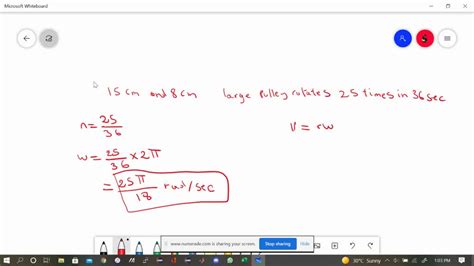 Microsoft Whiteboard
15 cm and 8 cm large pulley rotates 25 times in 36 sec
n = 25/36
V = rw
w = 25/36 × 2π
= 25π/18 rad/sec
www.numerade.com is sharing your screen. Stop sharing Hide
30°C Sunny
1:03 PM